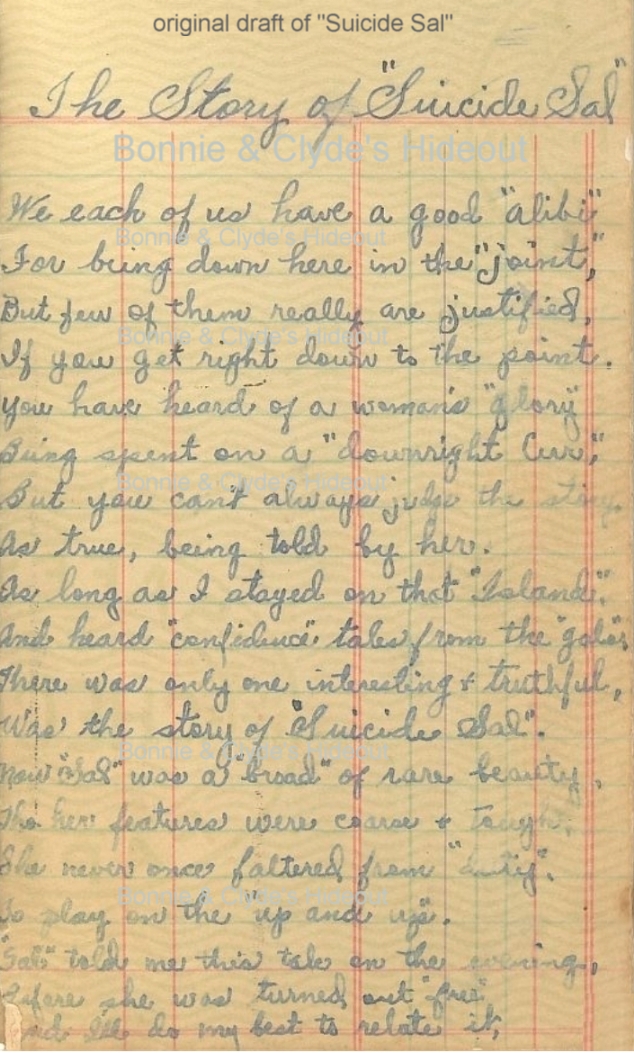 original draft of "Suicide Sal"
The Story of "Suicide Sal"
Bonnie & Clyde's Hideout
We each of us have a good "alibi"
Bonnie & Clyde's Hideout
For being down here in the "joint",
But few of them really are justified,
Bonnie & Clyde's Hideout
If you get right down to the point.
You have heard of a woman's "glory"
Being spent on a "downright Cur",
Bonnie & Clyde's Hideout
But you can't always judge the story
As true, being told by her.
As long as I stayed on that "Island",
And heard "confidence" tales from the "gals",
There was only one interesting & truthful,
Was the story of "Suicide Sal".
Bonnie & Clyde's Hideout
Now "Sal" was a "broad" of rare beauty,
Tho her features were coarse & tough.
She never once faltered from "duty",
Bonnie & Clyde's Hideout
To play on the "up and up".
"Sal" told me this tale on the evening,
Before she was turned out "free"
And I'll do my best to relate it,